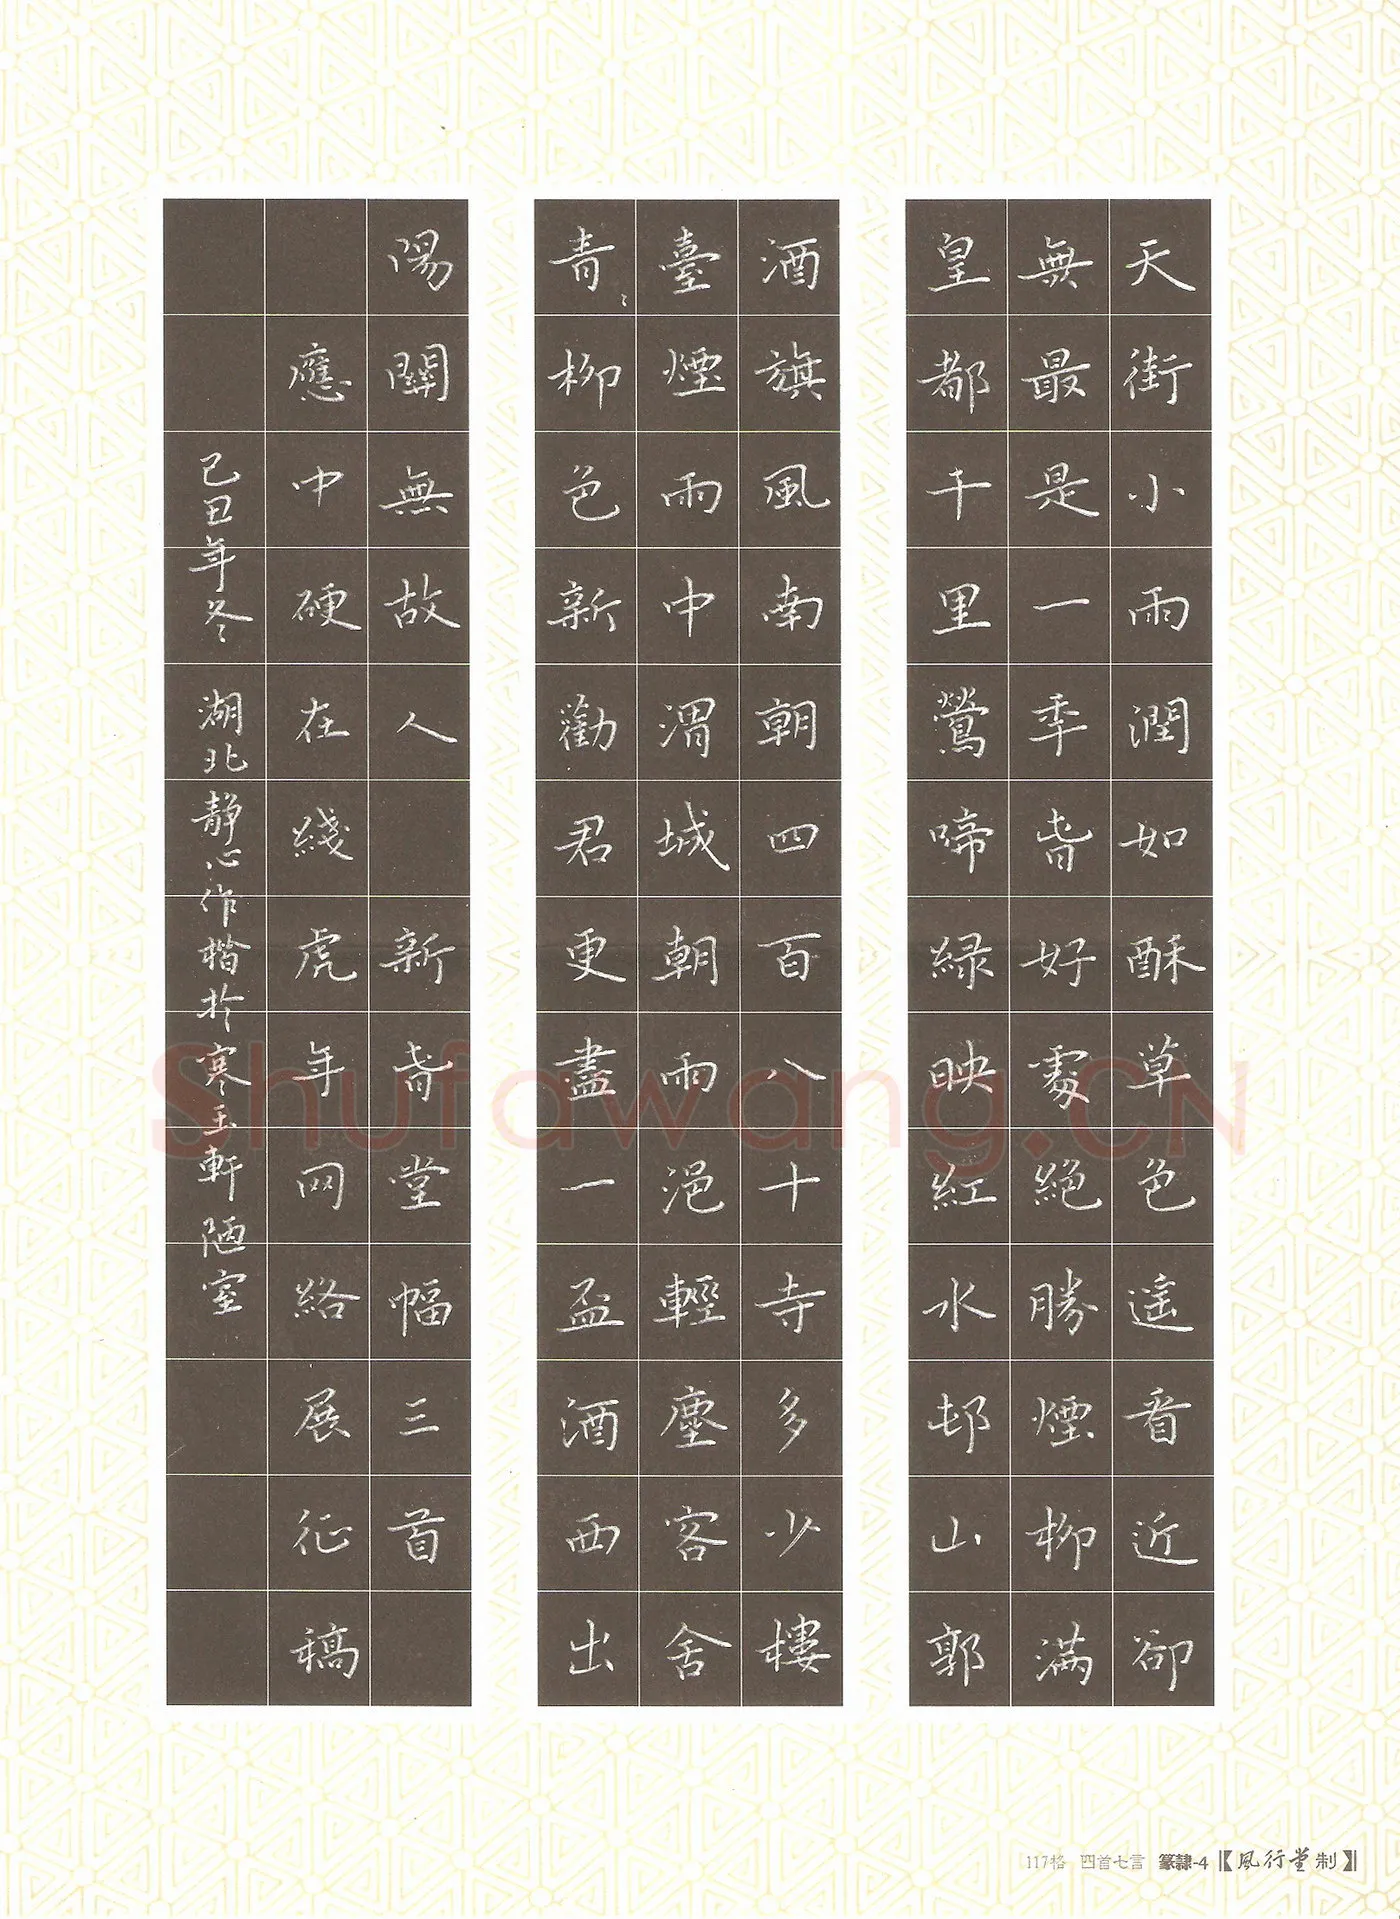 天街小雨潤如酥草色遙看近卻
無最是一秊旾好處絕勝煙柳滿
皇都千里鶯啼緑映紅水邨山郭
酒旗風南朝四百八十寺多少樓
臺煙雨中渭城朝雨浥輕塵客舍
青〻柳色新勸君更盡一盃酒西出
陽關無故人 新旾堂幅三首
應中硬在綫虎年网絡展征稿
己丑年冬 湖北静心作楷於寒玉軒陋室
Shufawang.CN
117格 四首七言 篆隸-4【風行堂制】